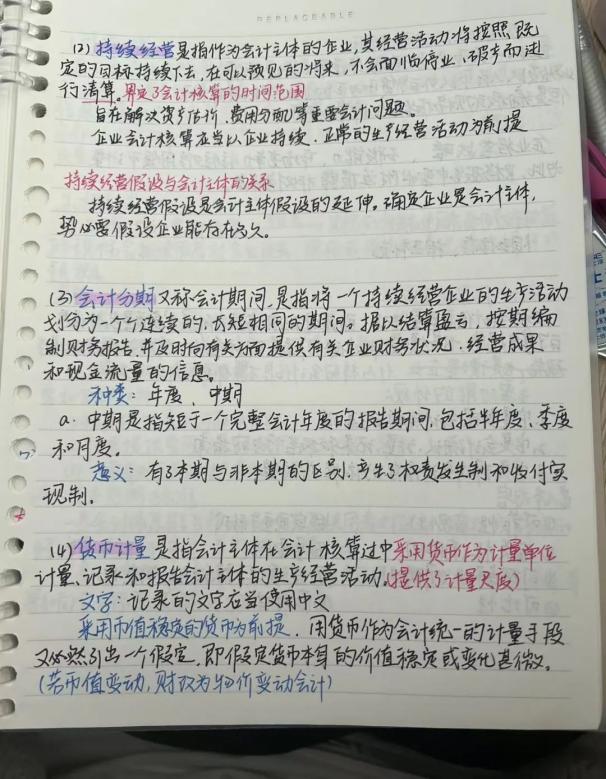 REPLACEABLE
(2) 持续经营是指作为会计主体的企业,其经营活动将按照既
定的目标持续下去,在可以预见的将来,不会面临停业、破产而进
行清算。界定了会计核算的时间范围
旨在解决资产估价、费用分配等重要会计问题。
企业会计核算应当以企业持续、正常的生产经营活动为前提
持续经营假设与会计主体的关系
持续经营假设是会计主体假设的延伸。确定企业是会计主体,
势必要假设企业能存在多久。
(3) 会计分期又称会计期间,是指将一个持续经营企业的生产活动
划分为一个个连续的、长短相同的期间。据以结算盈亏,按期编
制财务报告,并及时向有关方面提供有关企业财务状况、经营成果
和现金流量的信息。
种类:年度、中期
a. 中期是指短于一个完整会计年度的报告期间,包括半年度、季度
和月度。
意义:有了本期与非本期的区别,产生了权责发生制和收付实
现制。
(4) 货币计量是指会计主体在会计核算过中采用货币作为计量单位
计量、记录和报告会计主体的生产经营活动。(提供了计量尺度)
文字:记录的文字应当使用中文
采用币值稳定的货币为前提,用货币作为会计统一的计量手段
又必然引出一个假定,即假定货币本身的价值稳定或变化甚微。
(若币值变动,则改为物价变动会计)